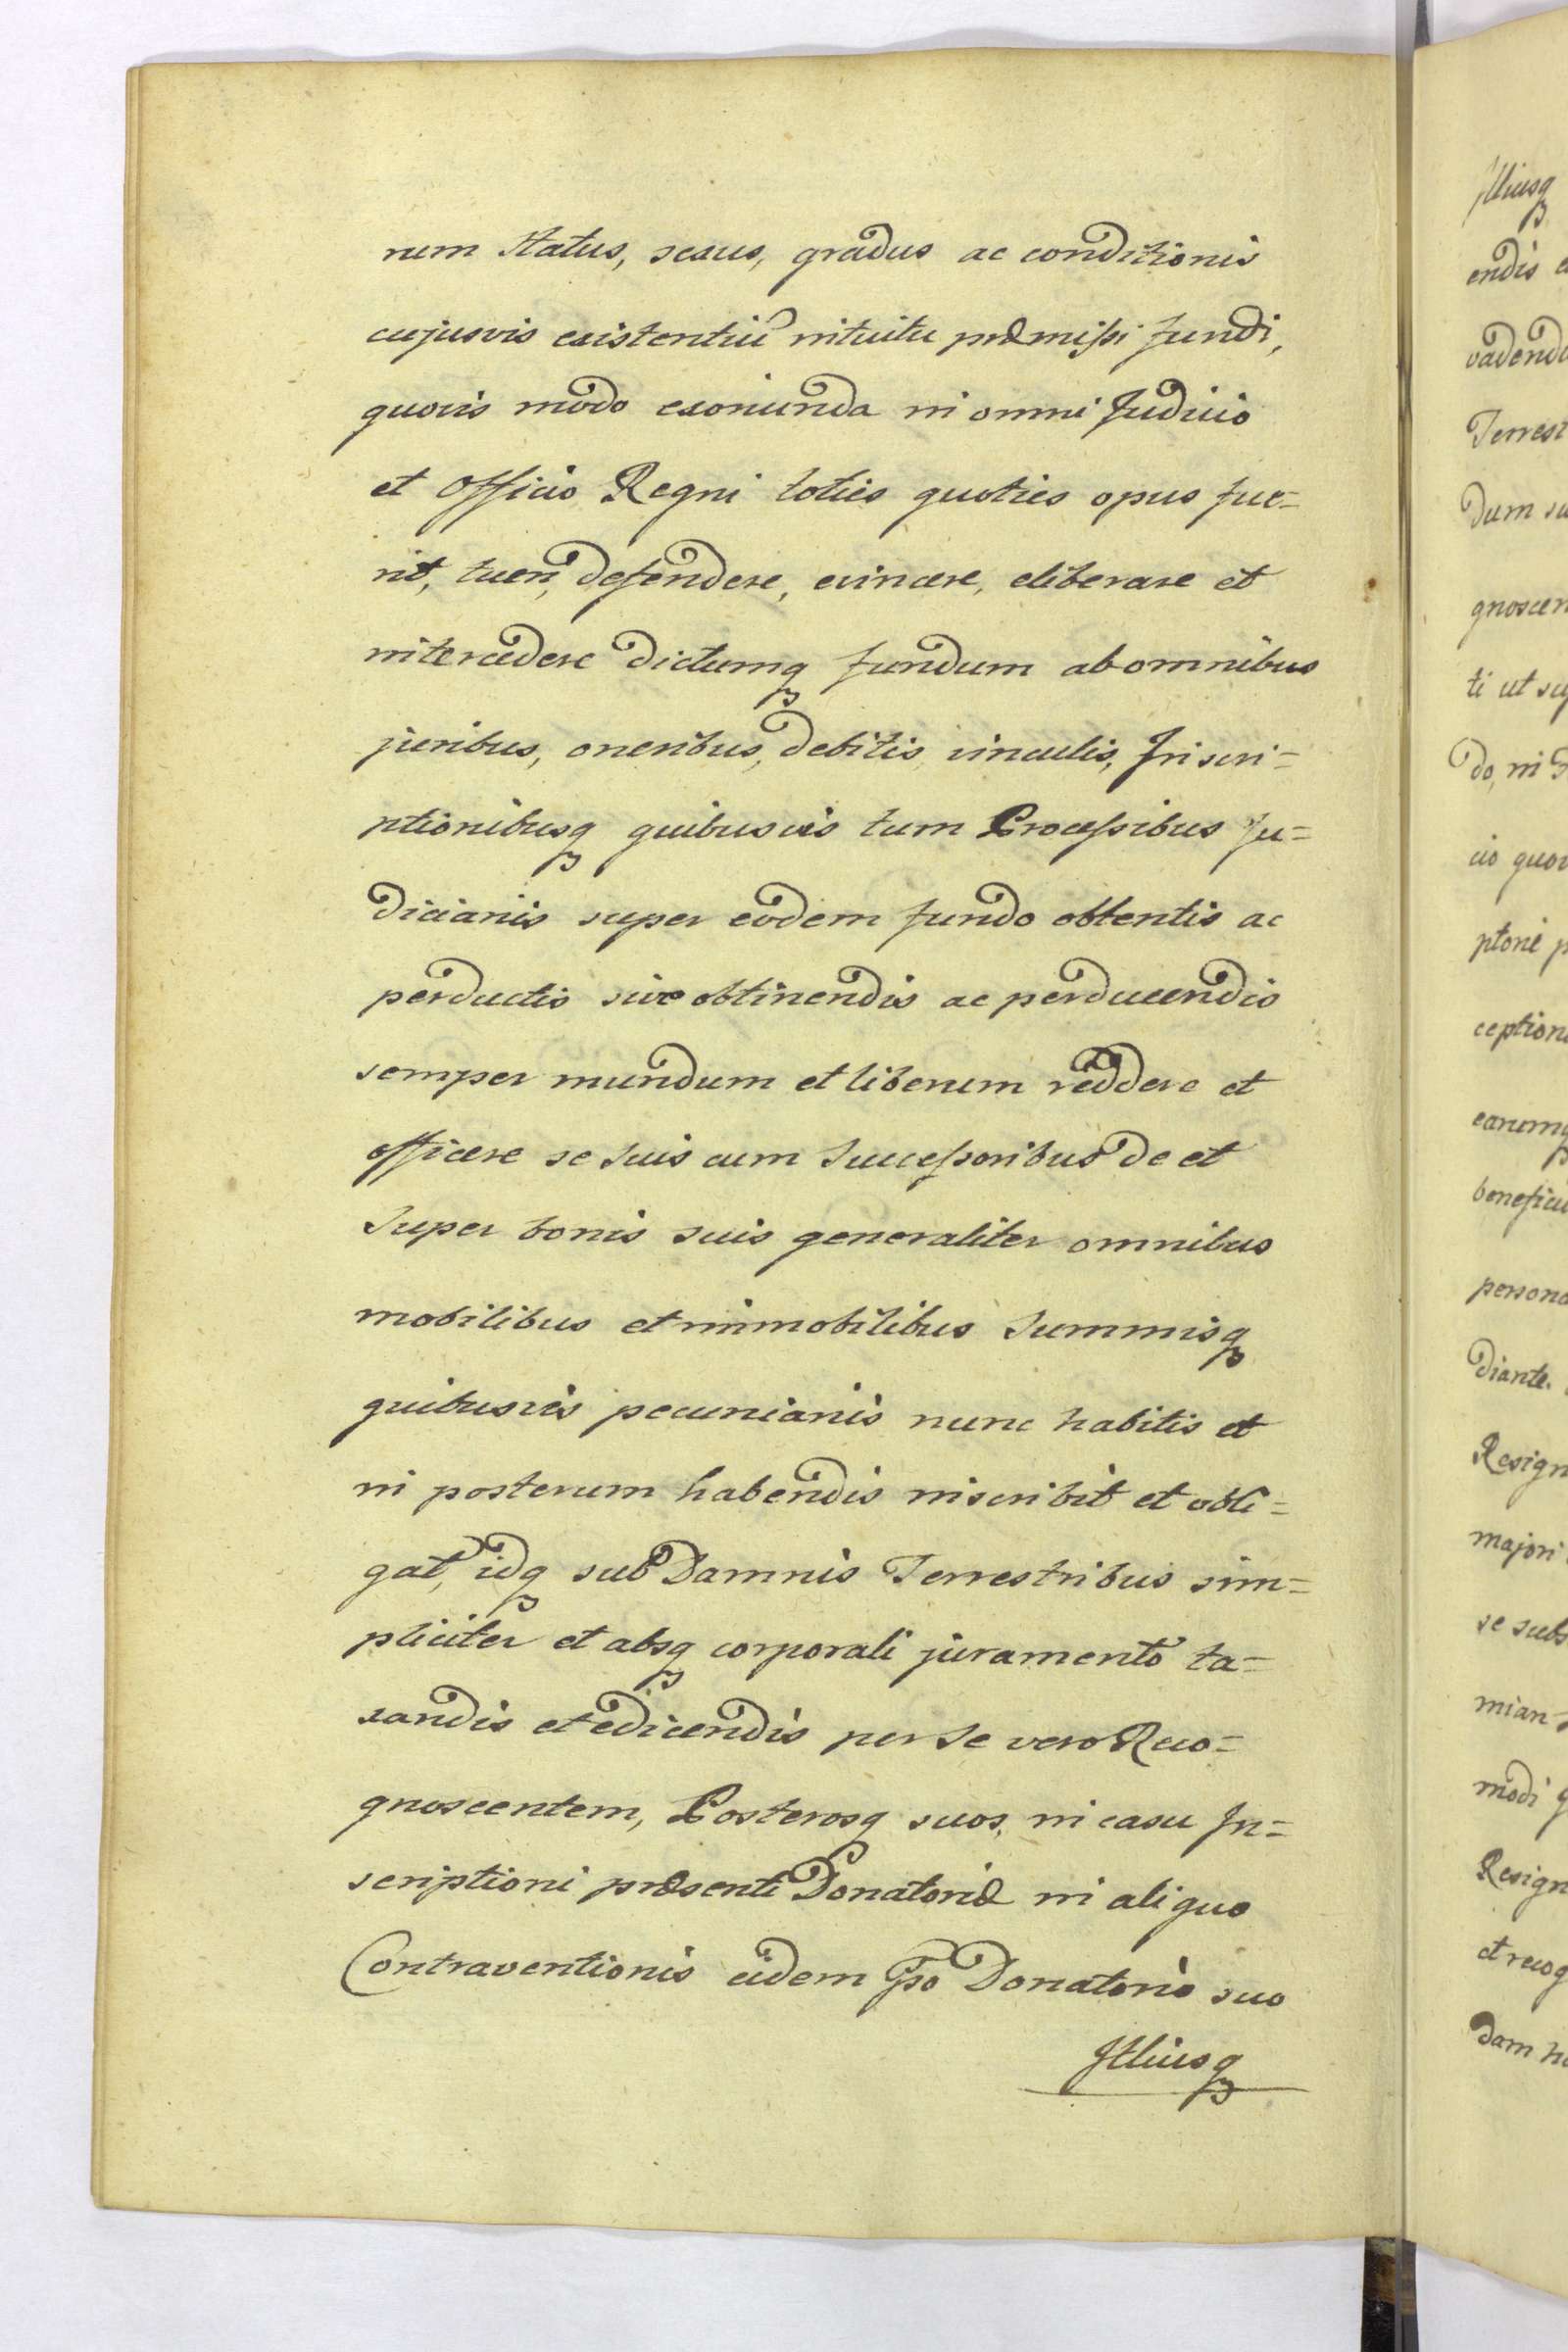 rum status, sexus, gradus ac conditionis
cujusvis existentiũ intuitu præmissi fundi,
quovis modo exoriunda in omni Judicio
et Officio Regni toties quoties opus fue=
rit, tueri, defendere, evincere, eliberare et
intercedere dictumq fundum ab omnibus
juribus, oneribus, debitis vinculis, Inscri=
ptionibusq quibusvis tum Processibus Ju=
diciariis super eodem fundo obtentis ac
perductis sive obtinendis ac perducendis
semper mundum et liberum reddere et
efficere se suis cum Successoribus de et
super bonis suis generaliter omnibus
mobilibus et immobilibus Summisq
quibusvis pecuniariis nunc habitis et
in posterum habendis inscribit et obli=
gat, idq sub Damnis Terrestribus sim=
pliciter et absq corporali juramento ta=
xandis et edicendis per se vero Reco=
gnoscentem, Posterosq suos, in casu In=
scriptioni præsenti Donatoriæ in aliquo
Contraventionis eidem Gso Donatorio suo
Illiusq
Illiusq
endis
vadend
Terrest
dum su
gnoscen
ti ut su
do, in
cio quov
ptoriẽ p
ceptiona
earumq
beneficii
persona
diante.
Resign
majori
se subs
mian
modi q
Resign
et recog
dam h